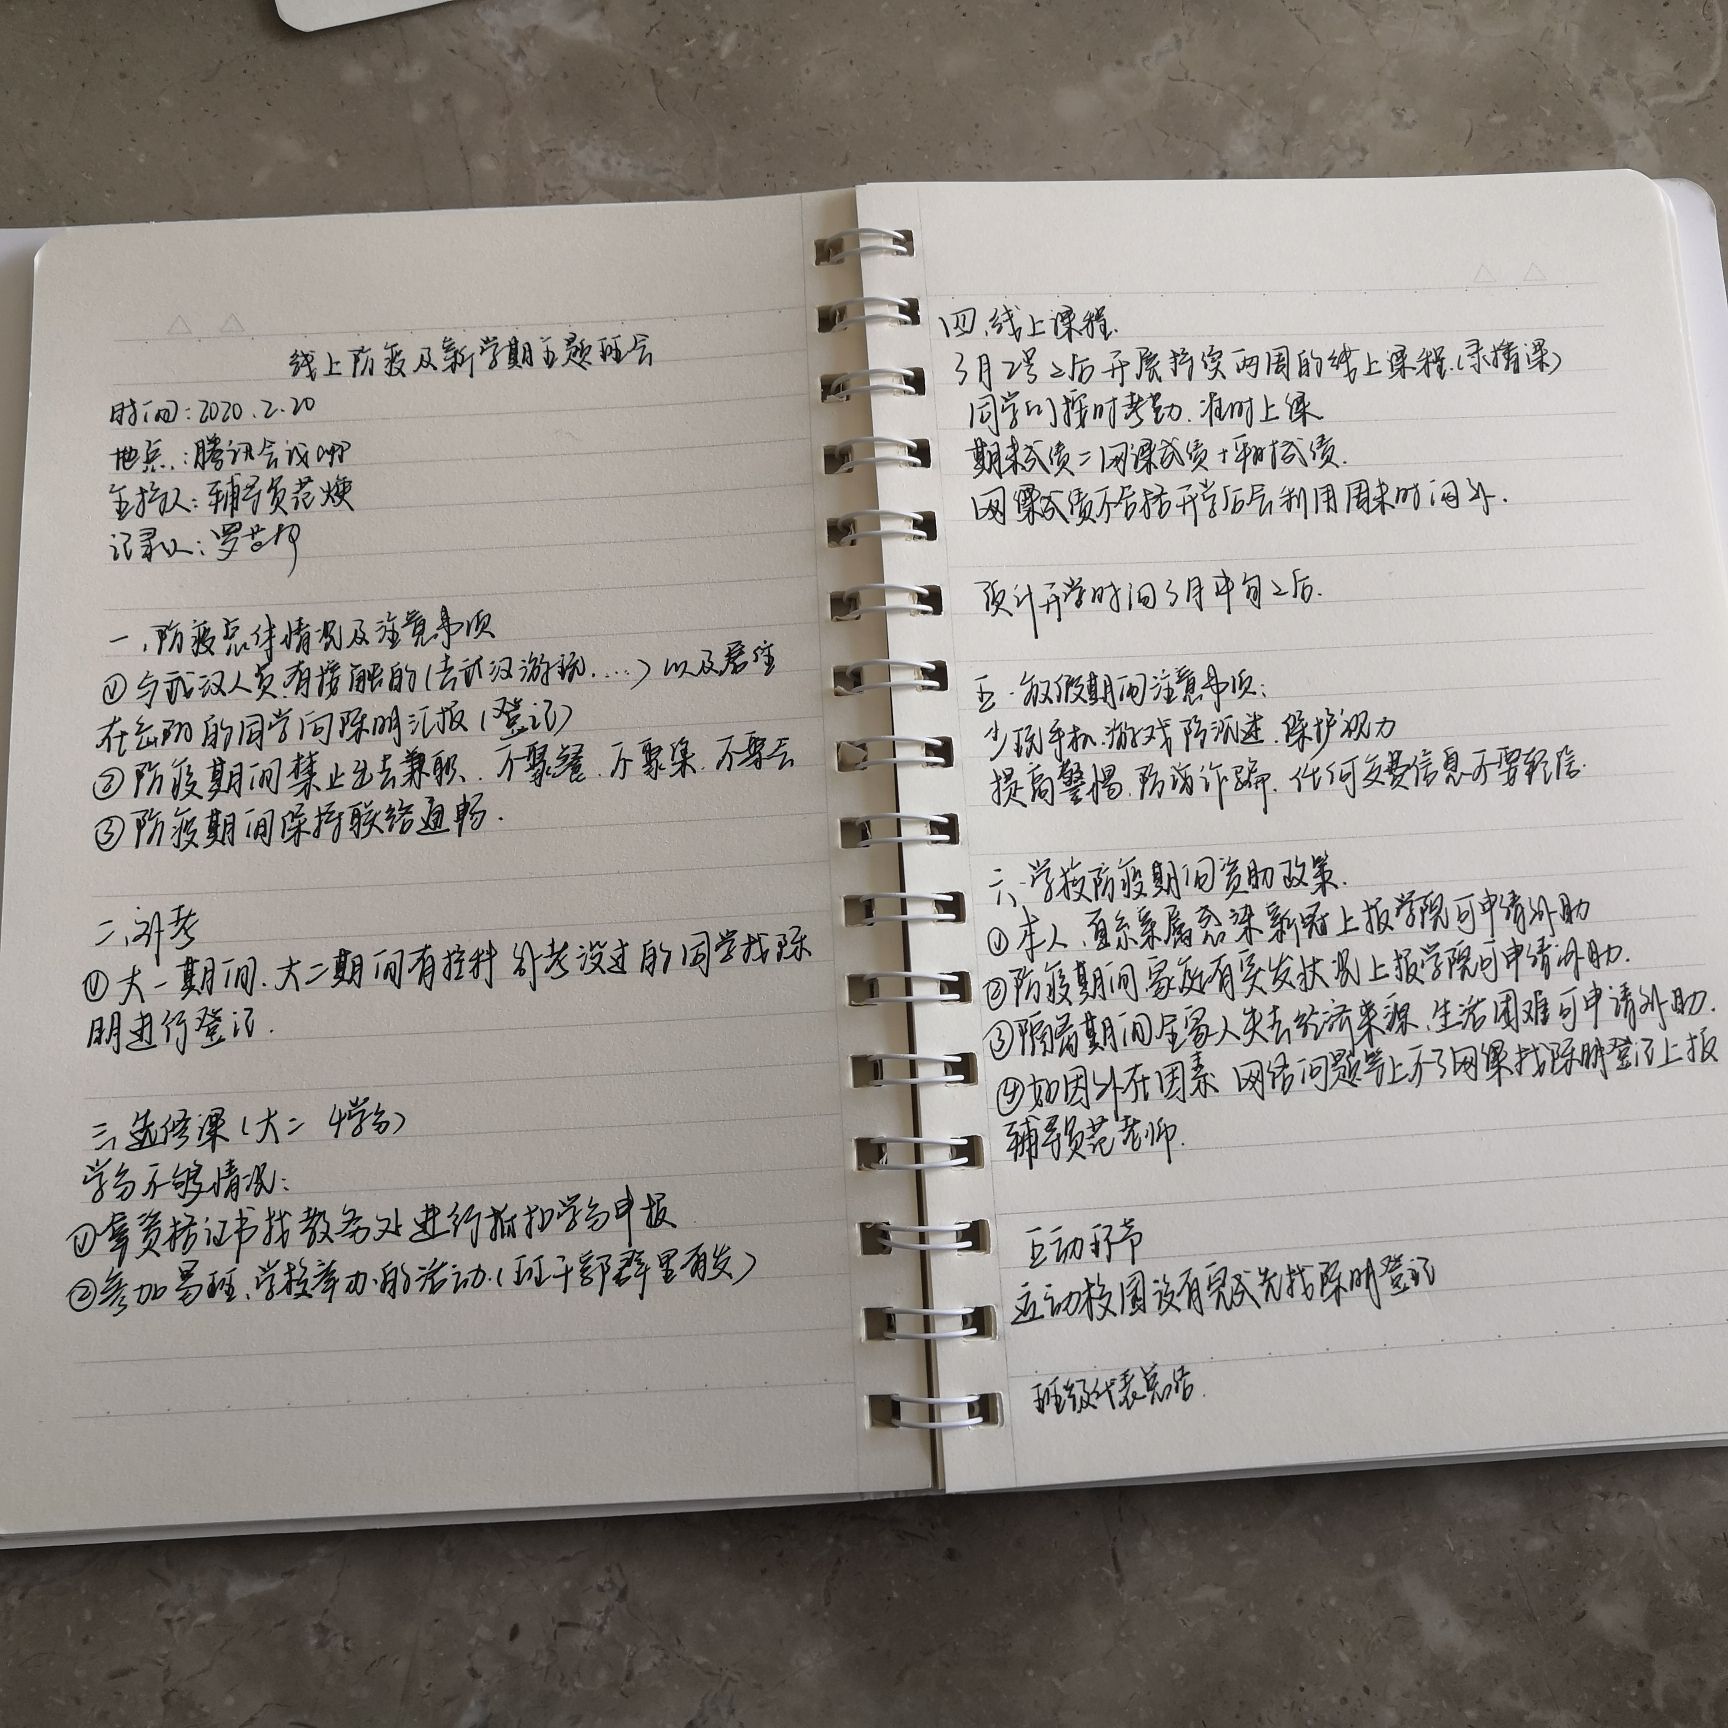 线上防疫及新学期主题班会
时间:2020.2.20
地点:腾讯会议app
主持人:辅导员范焕
记录人:罗
一、防疫总体情况及注意事项
①与武汉人员有接触的(去武汉游玩....)以及居住
在岳阳的同学向陈明汇报(登记)
②防疫期间禁止出去兼职、不聚餐.不聚集.不聚会
③防疫期间保持联络通畅.
二、补考
①大一期间.大二期间有挂科 补考没过的同学找陈
明进行登记.
三、选修课(大二 4学分)
学分不够情况:
①拿资格证书找教务处进行抵扣学分申报
②参加易班、学校举办的活动.(班干部群里有发)
四.线上课程.
3月2号之后开展持续两周的线上课程.(录播课)
同学们按时考勤.准时上课
期末成绩=网课成绩+平时成绩.
网课成绩不合格开学后会利用周末时间补.
预计开学时间3月中旬之后.
五.放假期间注意事项:
少玩手机.游戏防沉迷.保护视力
提高警惕.防诈骗.任何交费信息不要轻信.
六、学校防疫期间资助政策.
①本人、直系亲属感染新冠上报学院可申请补助
②防疫期间家庭有突发状况上报学院可申请补助.
③隔离期间全家人失去经济来源、生活困难可申请补助.
④如因外在因素 网络问题等上不了网课找陈明登记上报
辅导员范老师.
互动环节
运动校园没有完成先找陈明登记
班级代表总结.